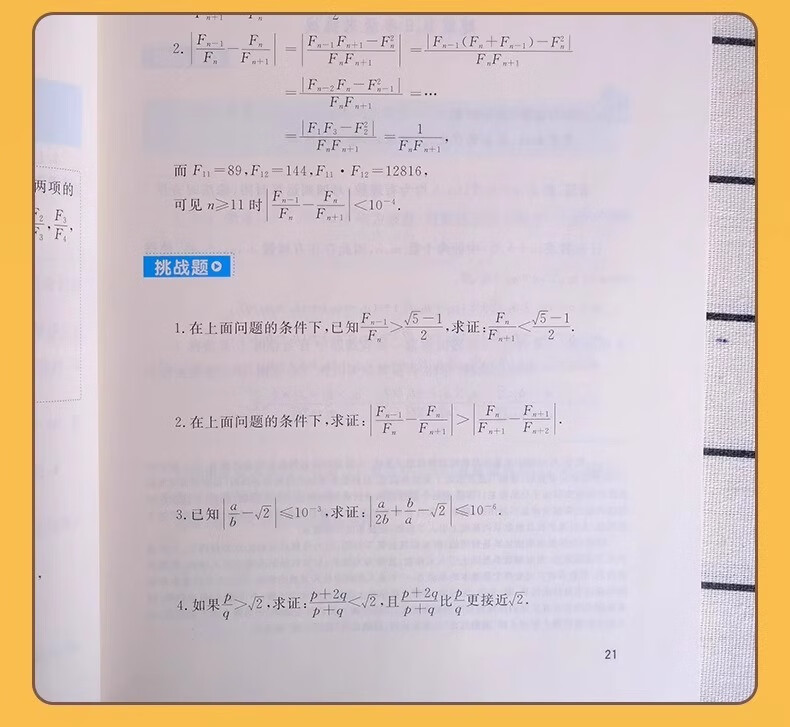 2. |F_{n-1}/F_n - F_n/F_{n+1}| = |F_{n-1}F_{n+1}-F_n^2|/F_nF_{n+1} = |F_{n-1}(F_n+F_{n-1})-F_n^2|/F_nF_{n+1}
= |F_{n-2}F_n-F_{n-1}^2|/F_nF_{n+1} = …
= |F_1F_3-F_2^2|/F_nF_{n+1} = 1/F_nF_{n+1},
而 F_{11}=89,F_{12}=144,F_{11}·F_{12}=12816,
可见 n≥11 时 |F_{n-1}/F_n - F_n/F_{n+1}| <10^{-4}.
两项的
F_2/F_3,F_3/F_4,
挑战题
1.在上面问题的条件下,已知 F_{n-1}/F_n > (√5-1)/2,求证:F_n/F_{n+1} < (√5-1)/2.
2.在上面问题的条件下,求证: |F_{n-1}/F_n - F_n/F_{n+1}| > |F_n/F_{n+1} - F_{n+1}/F_{n+2}|.
3.已知 |a/b-√2| ≤10^{-3},求证: |a/2b+b/a-√2| ≤10^{-6}.
4.如果 p/q >√2,求证: (p+2q)/(p+q) <√2,且 (p+2q)/(p+q) 比 p/q 更接近√2.
21